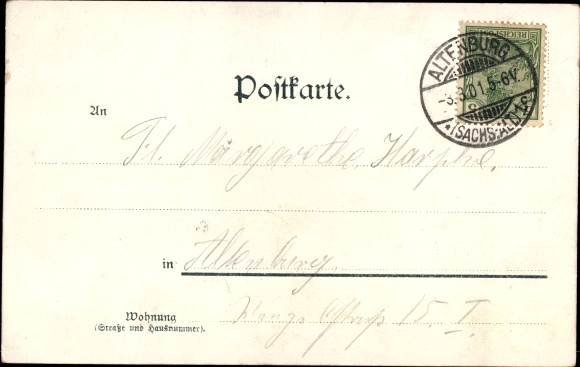 REICHSPOST
ALTENBURG
-3.3.01.5-6V.
*(SACHS.-ALT.)
Postkarte.
An
Frl. Margarethe
in
Altenburg.
Wohnung
(Straße und Hausnummer).
15. I.